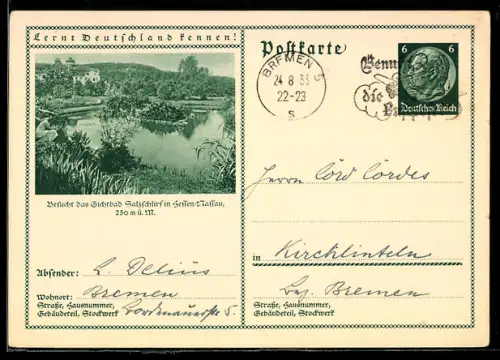 Lernt Deutschland kennen!
Besucht das Gichtbad Salzschlirf in Hessen-Nassau,
250 m ü. M.
Absender: L. Delius
Wohnort: Bremen
Straße, Hausnummer,
Gebäudeteil, Stockwerk
Postkarte
BREMEN 5
24 8 33
22-23
s
Benu
die
6 6
Deutsches Reich
Herrn Cörd Cordes
in Kirchlinteln
Bez. Bremen
Straße, Hausnummer,
Gebäudeteil, Stockwerk